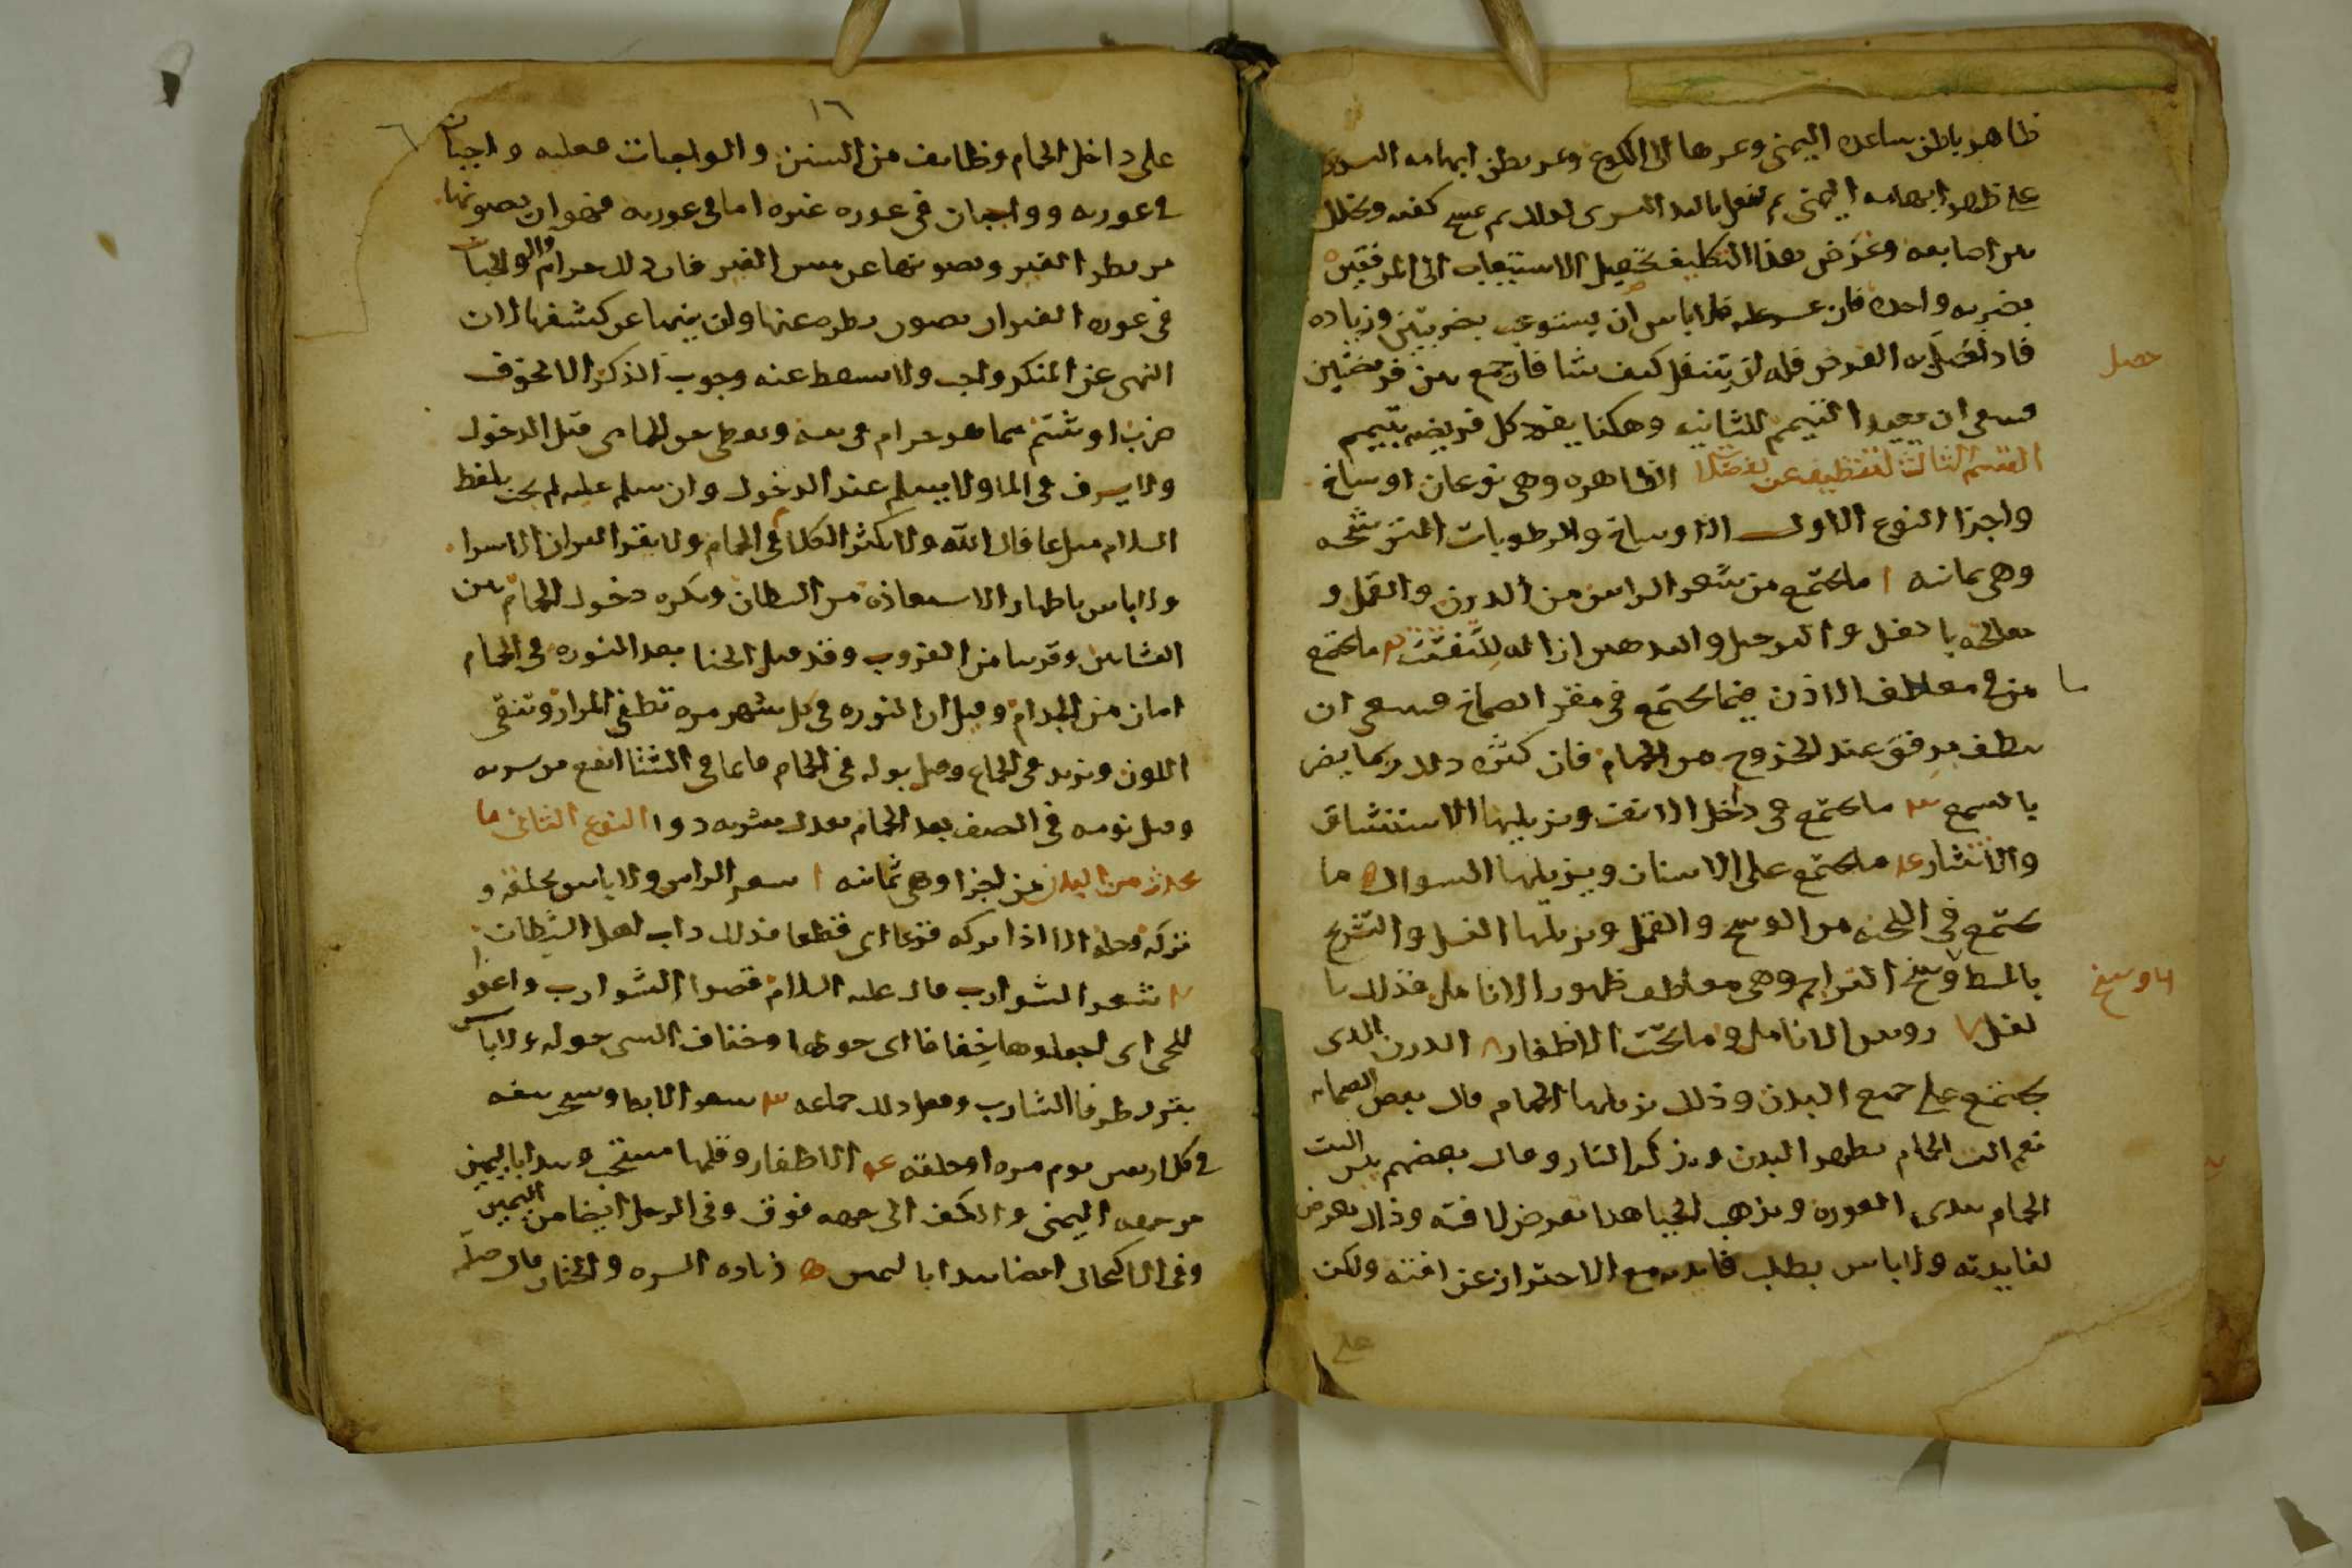 ظاهر باطن ساعده اليمنى وعرها الى الكوع وعر بطن ابهامه اليسرى
على ظهر ابهامه اليمنى ثم يفعل باليد اليسرى كذلك ثم يمسح كفيه ويخلل
بين اصابعه وغرض هذا التكليف تحصيل الاستيعاب الى المرفقين
بضربه واحده فان عسر عليه فلا باس ان يستوعب بضربتين وزياده
فاذا صلى به الفرض فله ان يتنفل كيف شا فان جمع بين فريضتين
فينبغى ان يعيد التيمم للثانيه وهكذا يفرد كل فريضه بتيمم
القسم الثالث التنظيف عن الفضلات الظاهره وهى نوعان اوساخ
واجزا النوع الاول الاوساخ والرطوبات المترشحه
وهى ثمانيه ١ ما يجتمع من شعر الراس من الدرن والقمل و
بالغسل والترجيل والتدهين ازاله للتفتت ٢ ما يجتمع
من فى معاطف الاذن فيما يجتمع فى مقر الصماخ فينبغى ان
ينظف برفق عند الخروج من الحمام فان كثره ذلك ربما يضر
بالسمع ٣ ما يجتمع فى داخل الانف ويزيلها الاستنشاق
والانتثار ٤ ما يجتمع على الاسنان ويزيلها السواك ٥ ما
يجتمع فى اللحيه من الوسخ والقمل ويزيلها الغسل والتسريح
بالمشط وسخ البراجم وهى معاطف ظهور الانامل فذلك
تغسل ٧ روس الانامل وما تحت الاظفار ٨ الدرن الذى
يجتمع على جميع البدن وذلك يزيلها الحمام قال بعض الصحابه
نعم البيت الحمام يطهر البدن ويذكر النار وقال بعضهم بئس البيت
الحمام يبدى العوره ويذهب الحيا هذا تعرض لافته وذاك تعرض
لفايدته ولا باس بطلب فايدته مع الاحتراز عن افته ولكن
على
حصل
اما وسخ
١٦
على داخل الحمام وظائف من السنن والواجبات فعليه واجبان
فى عورته وواجبان فى عوره غيره اما فى عورته فهو ان يصونها
من نظر الغير ويصونها عن مس الغير فان ذلك حرام والواجبان
فى عوره الغير ان يصون نظره عنها وان ينهى عن كشفها لان
النهى عن المنكر واجب ولا يسقط عنه وجوب الذكر الا لخوف
ضرب او شتم مما هو حرام فى نفسه ويعطى حق الحمامى قبل الدخول
ولا يسرف فى الما ولا يسلم عند الدخول وان سلم عليه لم يجب بلفظ
السلام بل عافاك الله ولا يكثر الكلام فى الحمام ولا يقرا القران الا سرا
ولا باس باظهار الاستعاذه من الشيطان ويكره دخول الحمام بين
العشائين وقريبا من الغروب وقد قيل الحنا بعد النوره فى الحمام
امان من الجذام وقيل ان النوره فى كل شهر مره تطفى المرار وتنقى
اللون وتزيد فى الجماع وقيل بوله فى الحمام قايما فى الشتا انفع من شربه
وقيل نومه فى الصيف بعد الحمام يعدل شربه دوا النوع الثانى ما
يحدث من البدن من اجزا وهى ثمانيه ١ شعر الراس ولا باس بحلقه و
تركه الا اذا تركه قزعا اى قطعا فذلك داب اهل الشيطان
٢ شعر الشوارب قال عليه السلام قصوا الشوارب واعفوا
اللحى اى اجعلوها خفافا اى حولها وخفاف الشى حوله ولا باس
بترك طرفا الشارب وفعل ذلك جماعه ٣ شعر الابط ويستحب نتفه
فى كل اربعين يوم مره او حلقه ٤ الاظفار وقلمها مستحب ويبدا باليمين
من سبحه اليمنى والكف الى جهه فوق وفى الرجل ايضا من اليمين
وفى الاكتحال ايضا يبدا باليمين ٥ زياده السره والختان قال صلى